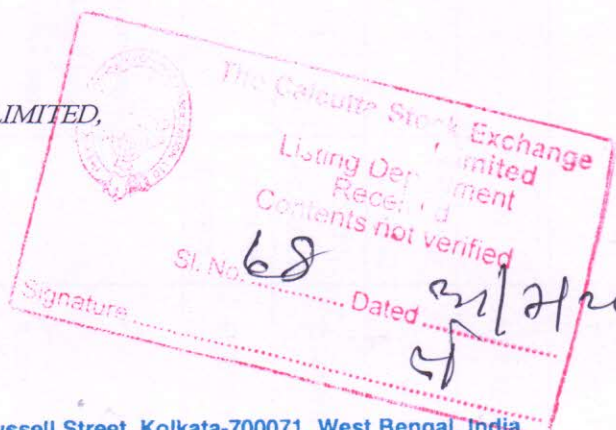 LIMITED,
The Calcutta Stock Exchange
Limited
Listing Department
Received
Contents not verified
Sl. No. 68 Dated
Signature
ussell Street, Kolkata-700071, West Bengal, India